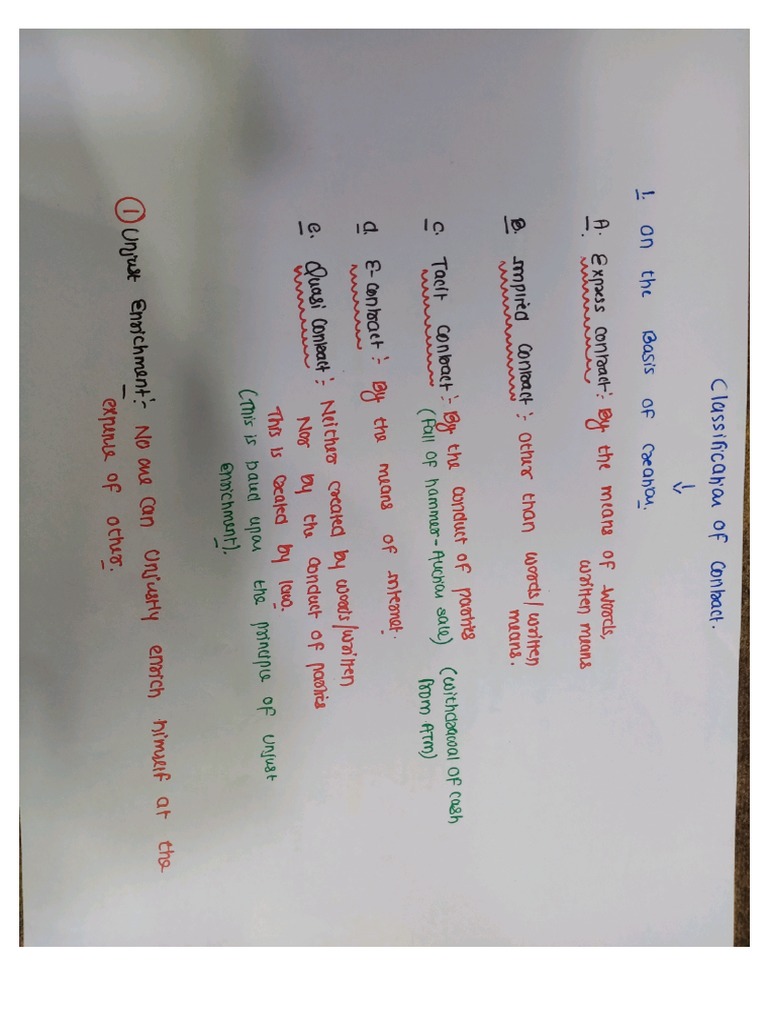 Classification of Contract.
↓
1. On the Basis of Creation.
A. Express Contract:- By the means of words,
written means
B. Implied Contract:- Other than words/written
means.
C. Tacit Contract:- By the conduct of parties
(Fall of hammer - Auction sale) (Withdrawal of cash
from ATM)
d. E-contract:- By the means of internet.
e. Quasi Contract:- Neither created by words/written
Nor by the conduct of parties
This is created by law.
(This is based upon the principle of unjust
enrichment).
① Unjust Enrichment:- No one can unjustly enrich himself at the
expense of other.